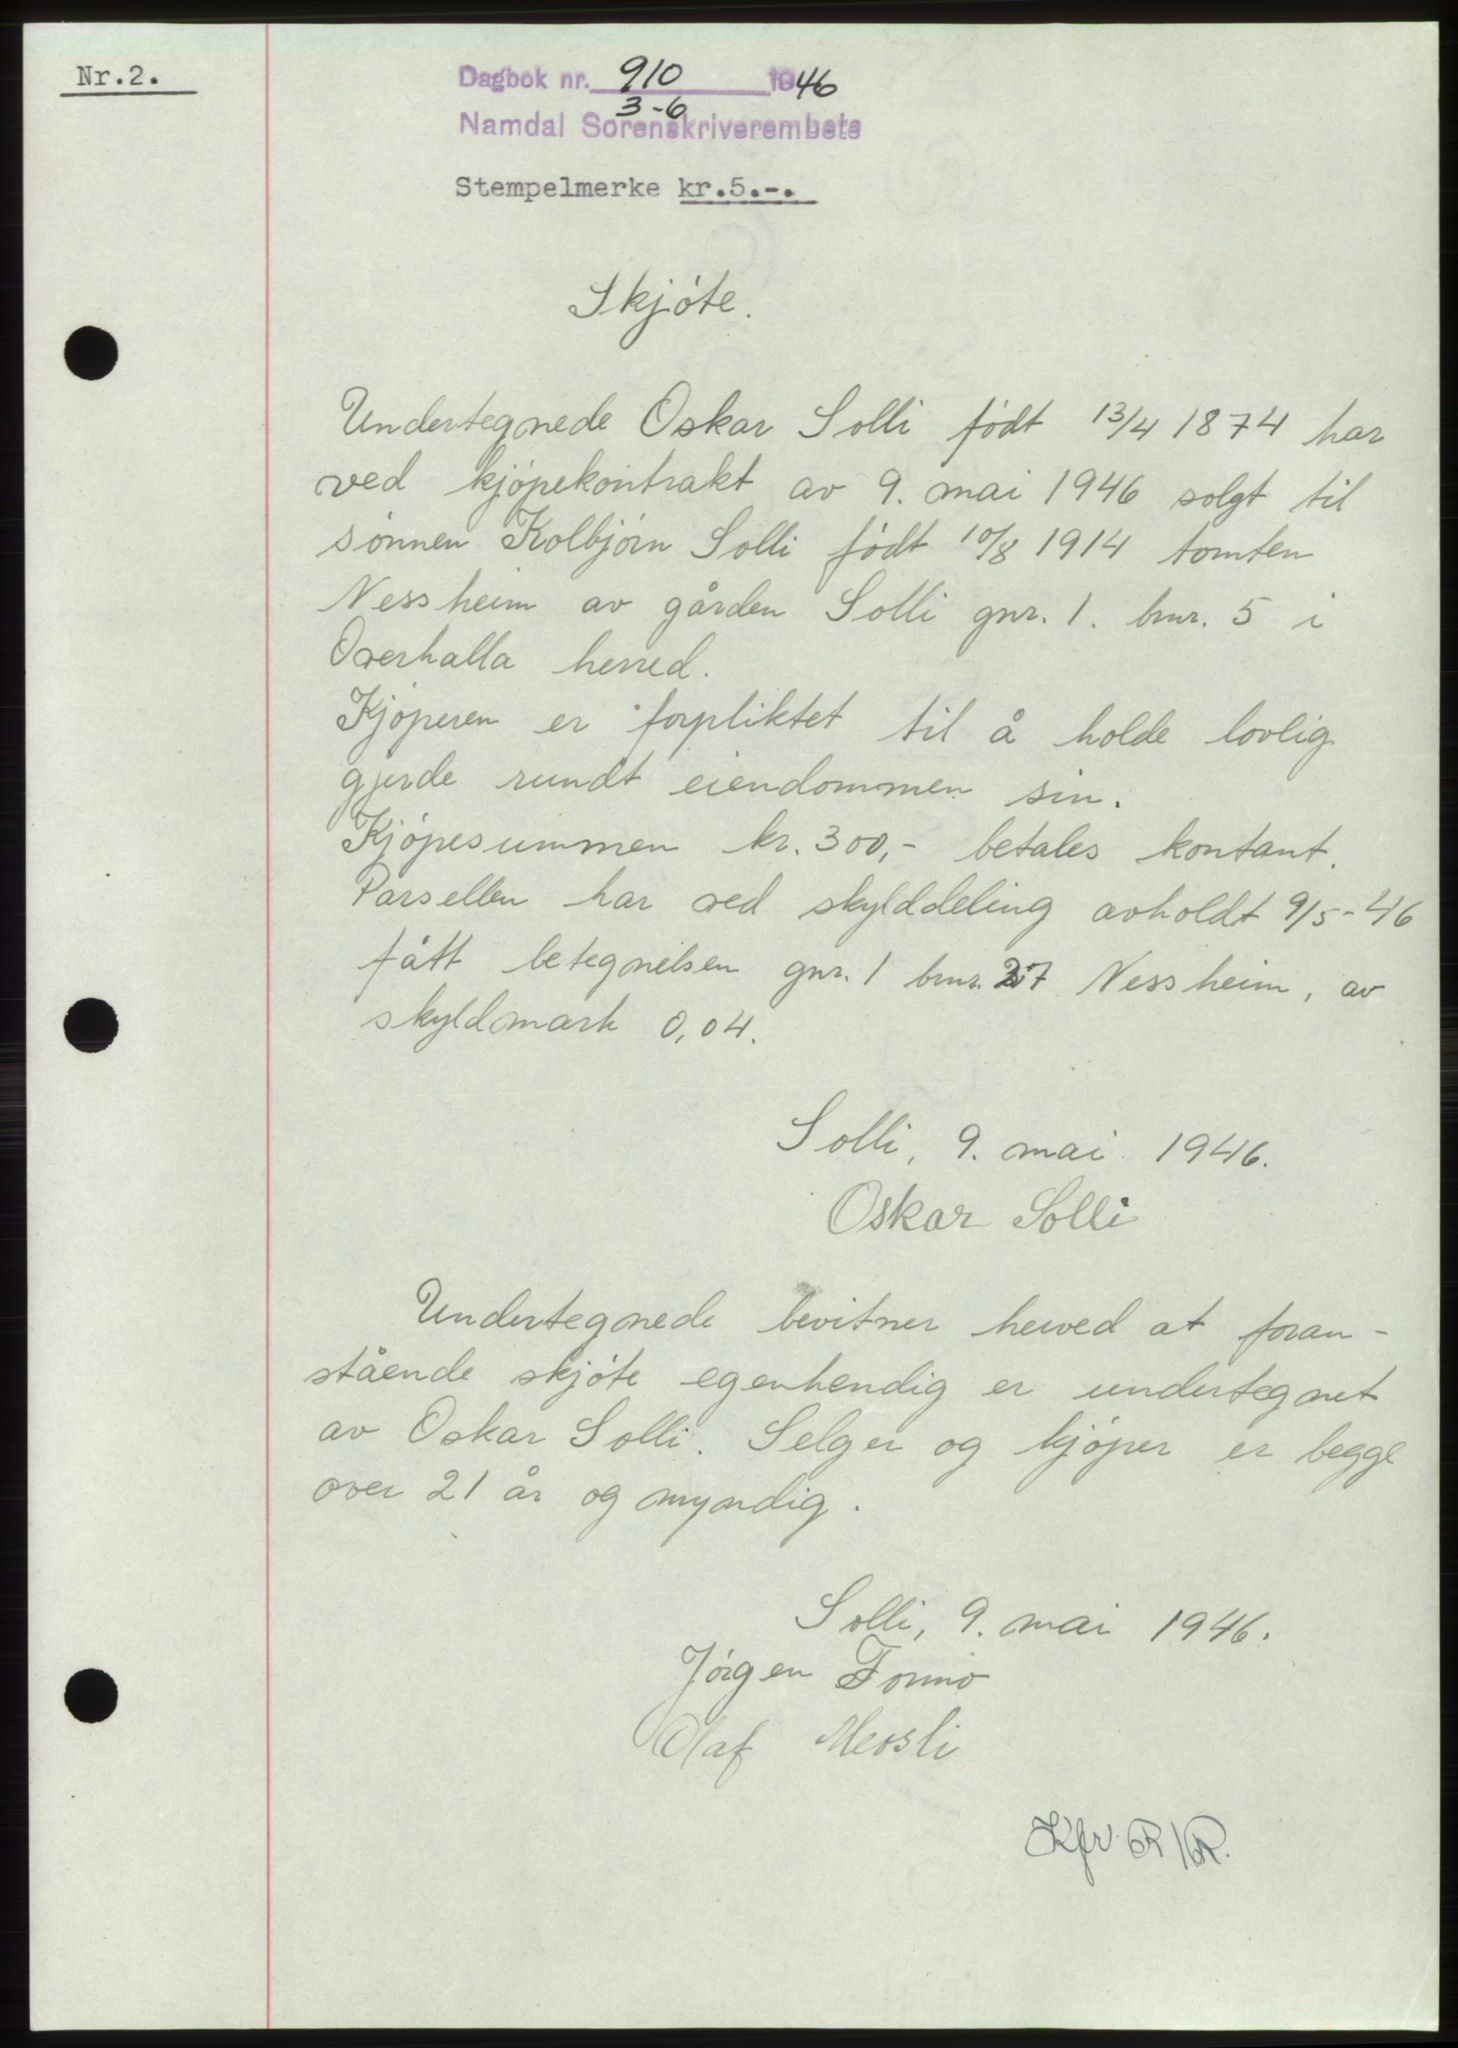 Nr.2.
Dagbok nr. 910 1946
3-6
Namdal Sorenskriverembete
Stempelmerke kr.5.-.
Skjøte.
Undertegnede Oskar Solli født 13/4 1874 har
ved kjøpekontrakt av 9. mai 1946 solgt til
sønnen Kolbjørn Solli født 10/8 1914 tomten
Nessheim av gården Solli gnr. 1. bnr. 5 i
Overhalla herred.
Kjøperen er forpliktet til å holde lovlig
gjerde rundt eiendommen sin.
Kjøpesummen kr. 300,- betales kontant.
Parsellen har ved skylddeling avholdt 9/5-46
fått betegnelsen gnr. 1 bnr. 27 Nessheim, av
skyldmark 0,04.
Solli, 9. mai 1946.
Oskar Solli
Undertegnede bevitner herved at foran-
stående skjøte egenhendig er undertegnet
av Oskar Solli. Selger og kjøper er begge
over 21 år og myndig.
Solli, 9. mai 1946.
Jørgen
Olaf